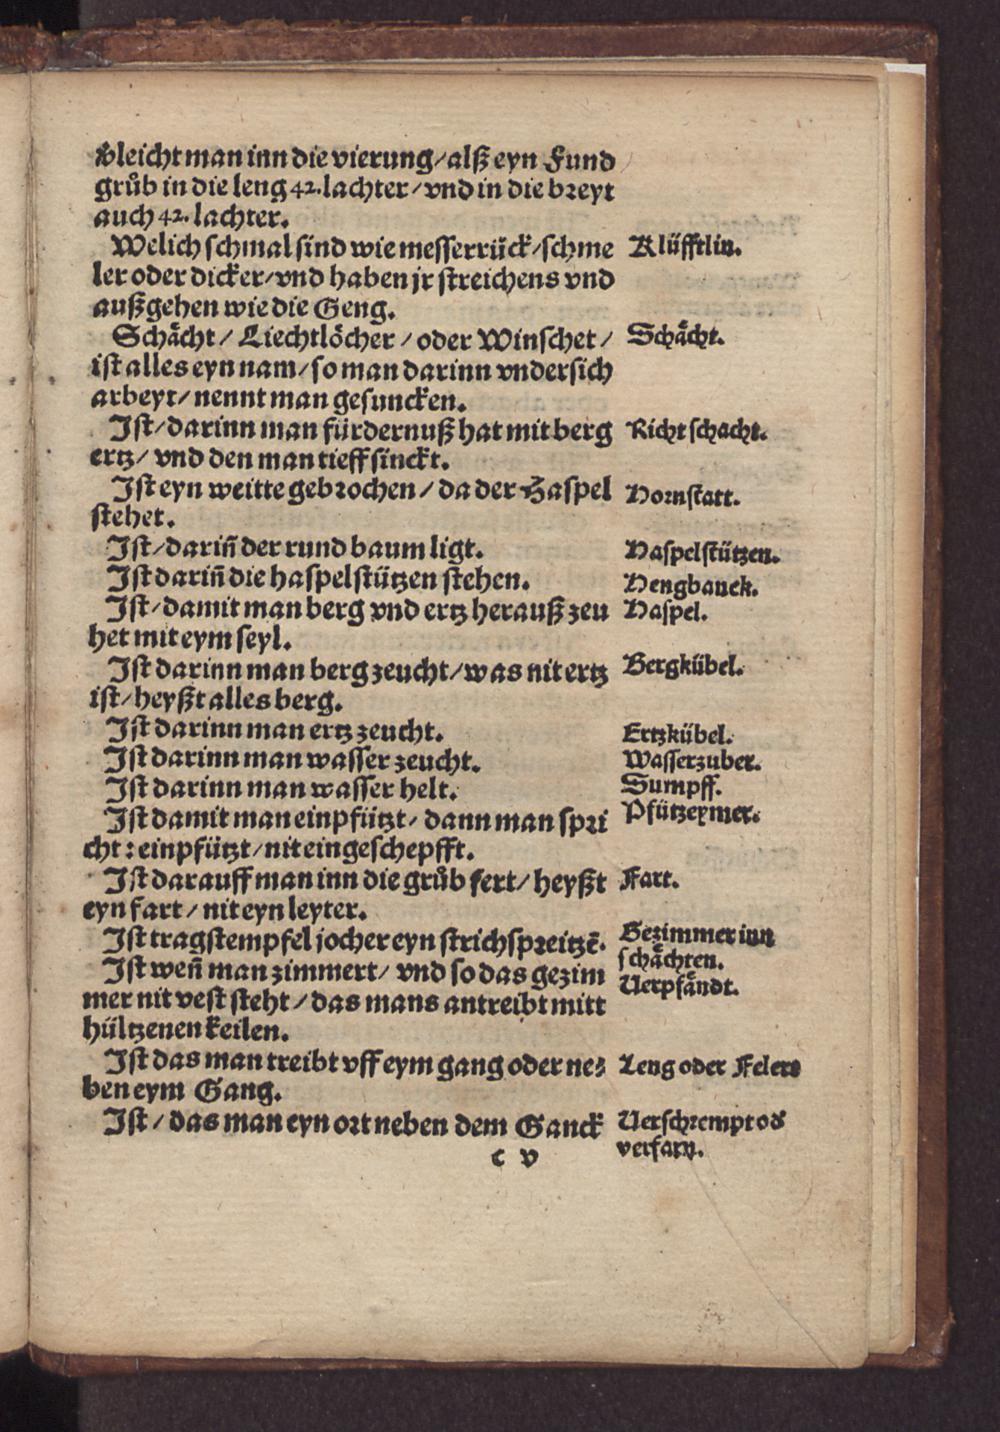 vleicht man inn die vierung/ alß eyn Fund
grůb in die leng 42. lachter/ vnd in die breyt
auch 42. lachter.
Welich schmal sind wie messerrück/ schme
ler oder dicker/ vnd haben jr streichens vnd
außgehen wie die Geng.
Klüfftlin.
Schaͤcht/ Liechtloͤcher/ oder Winschet/
ist alles eyn nam/ so man darinn vndersich
arbeyt/ nennt man gesuncken.
Schaͤcht.
Ist/ darinn man fürdernuß hat mit berg
ertz/ vnd den man tieff sinckt.
Richtschacht.
Ist eyn weitte gebrochen/ da der Haspel
stehet.
Hornstatt.
Ist/ dariñ der rund baum ligt.
Haspelstützen.
Ist dariñ die haspelstützen stehen.
Hengbanck.
Ist/ damit man berg vnd ertz herauß zeu
het mit eym seyl.
Haspel.
Ist darinn man berg zeucht/ was nit ertz
ist/ heyßt alles berg.
Bergkübel.
Ist darinn man ertz zeucht.
Ertzkübel.
Ist darinn man wasser zeucht.
Wasserzuber.
Ist darinn man wasser helt.
Sumpff.
Ist damit man einpfützt/ dann man spri
cht: einpfützt/ nit eingeschepfft.
Pfützeymer.
Ist darauff man inn die grůb fert/ heyßt
eyn fart/ nit eyn leyter.
Fart.
Ist tragstempfel jocher eyn strichspreitzē.
Gezimmer inn
schaͤchten.
Ist weñ man zimmert/ vnd so das gezim
mer nit vest steht/ das mans antreibt mitt
hültzenen keilen.
Verpfaͤndt.
Ist das man treibt vff eym gang oder ne⸗
ben eym Gang.
Leng oder Felers
Ist/ das man eyn ort neben dem Ganck
Verschrempt od
verfarn.
c v